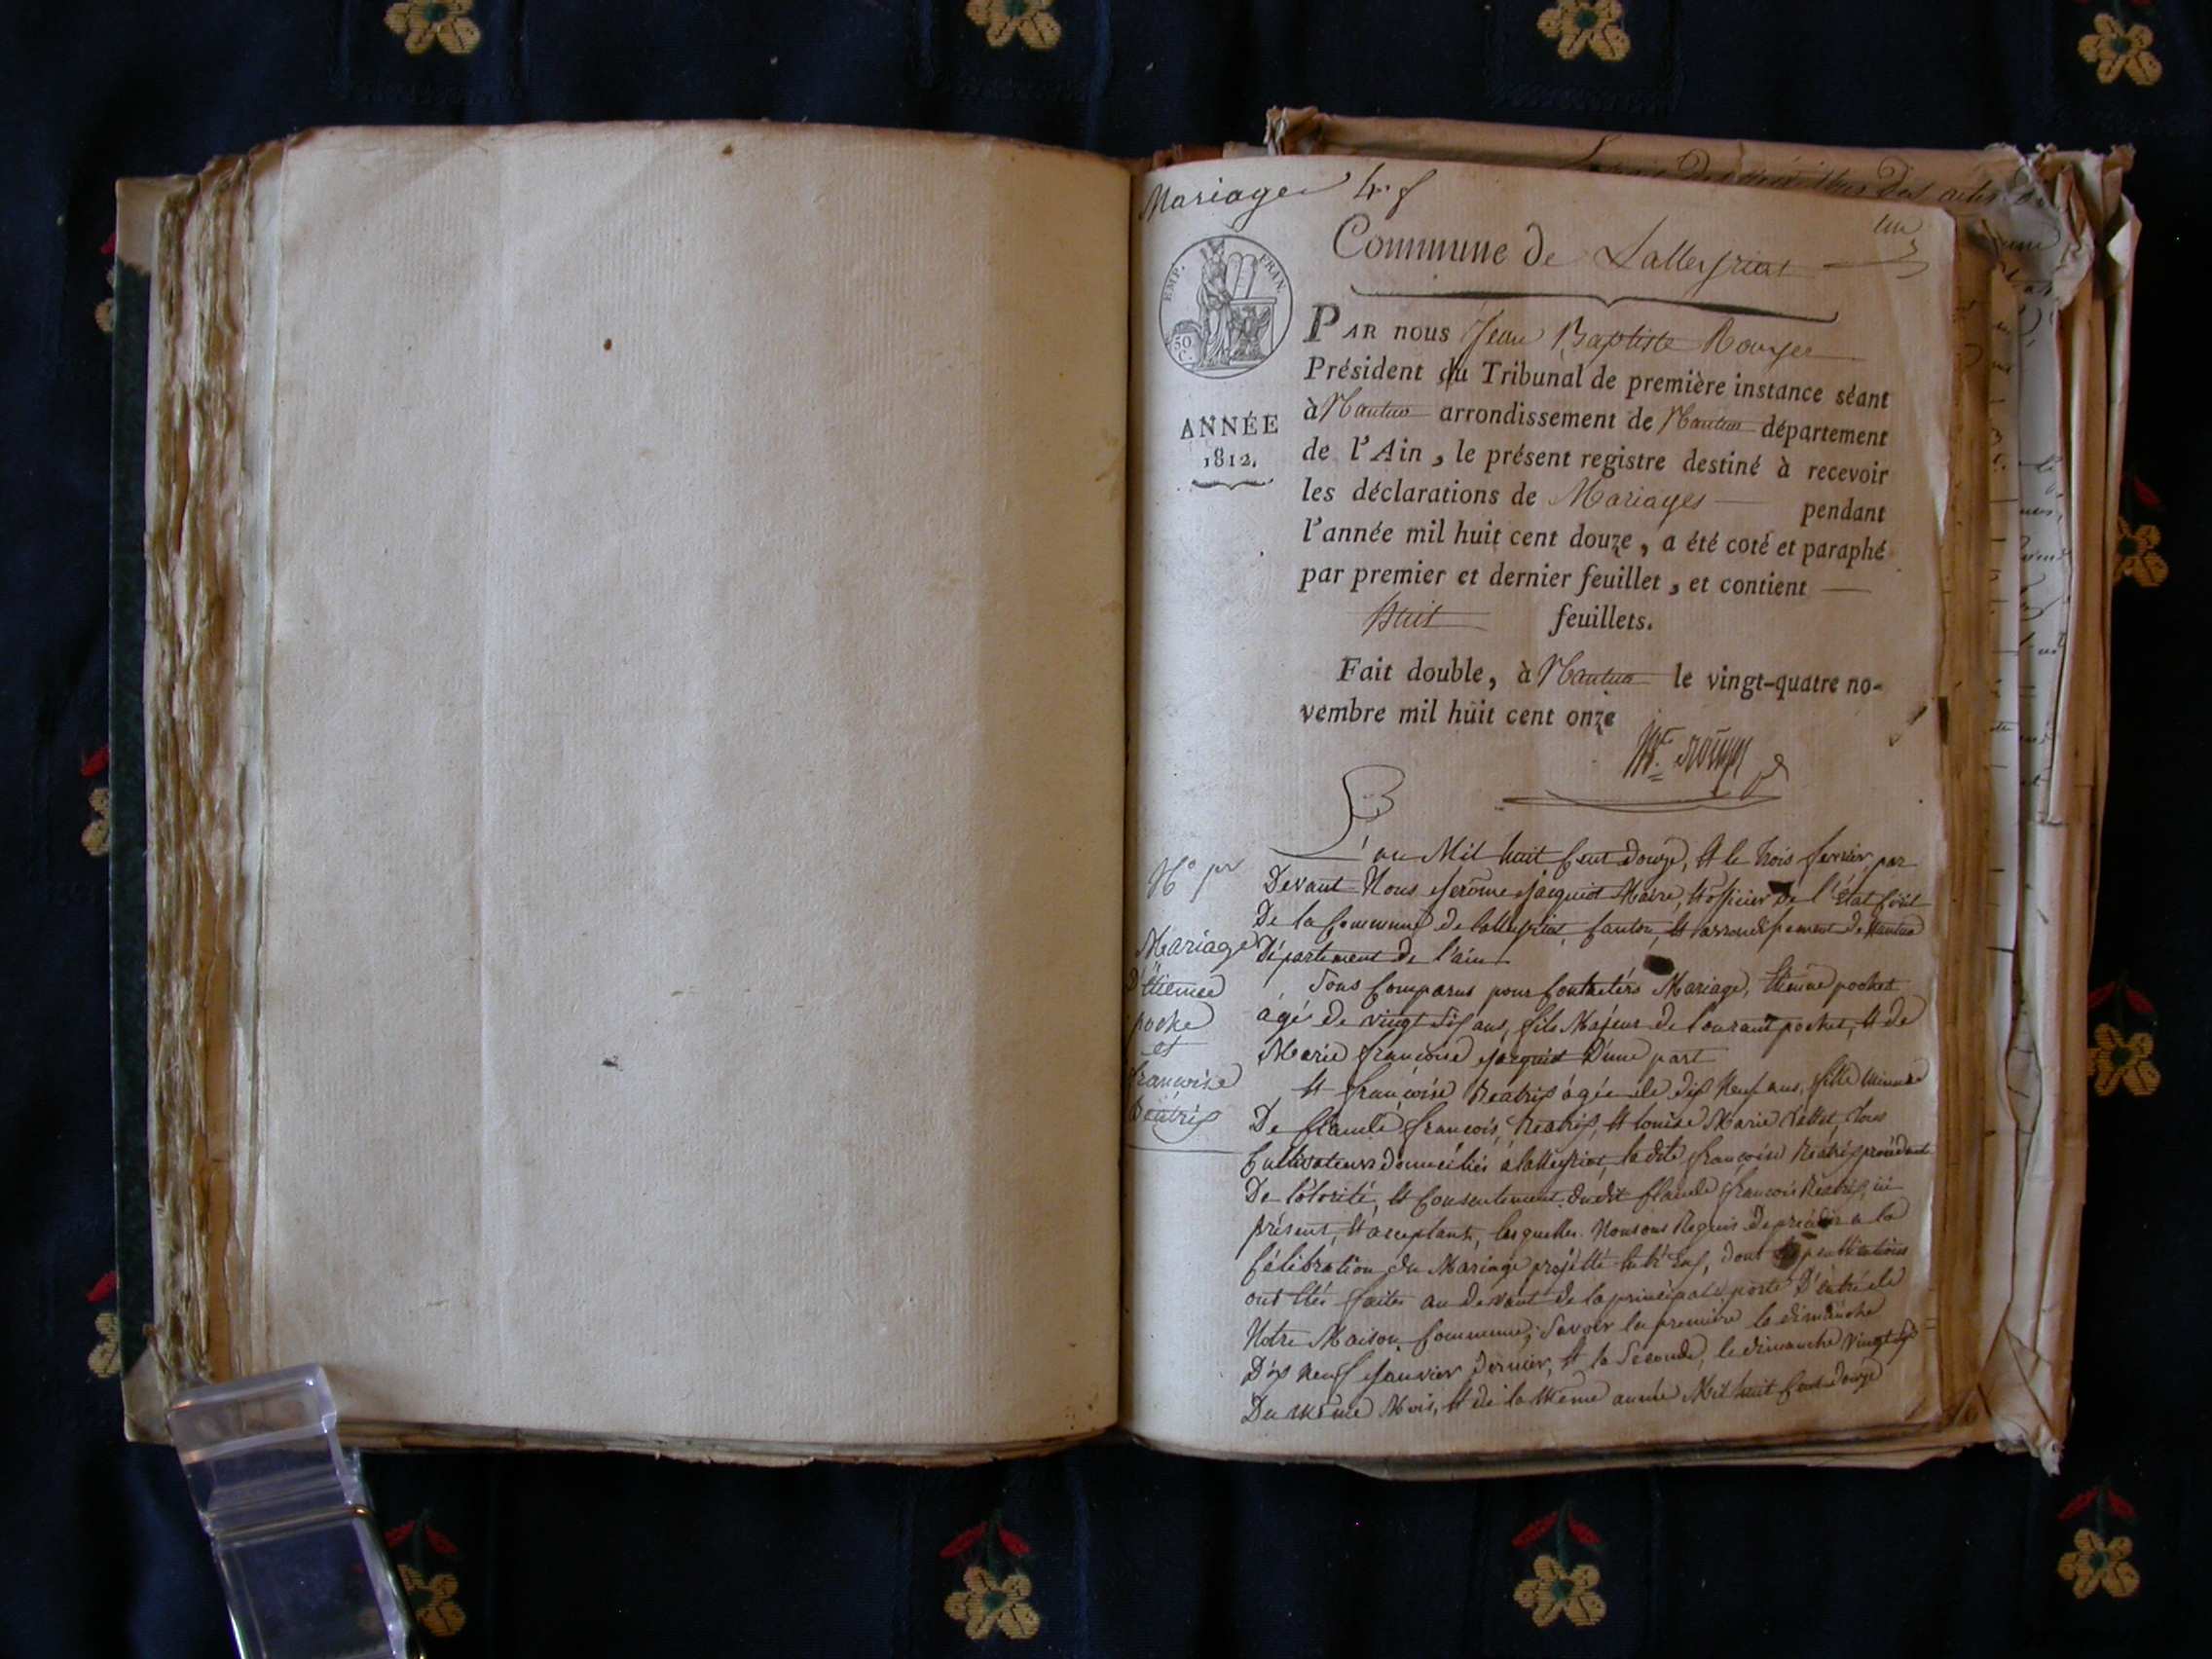 Mariages 4. f
un
Commune de Lalleyriat
EMP. FRAN.
50 C.
PAR nous Jean Baptiste Rouyer
Président du Tribunal de première instance séant
à Nantua arrondissement de Nantua département
ANNÉE
1812.
de l'Ain, le présent registre destiné à recevoir
les déclarations de Mariages pendant
l'année mil huit cent douze, a été coté et paraphé
par premier et dernier feuillet, et contient
huit feuillets.
Fait double, à Nantua le vingt-quatre no-
vembre mil huit cent onze
L'an Mil huit Cent Douze, Et le trois fevrier par
Devant Nous Jerôme Jacquiot Maire, Et officier de l'Etat Civil
De la Commune de lalleyriat, Canton, Et arrondissement de Nantua
Département de l'ain
N° pr
Mariage
D'Etienne
poche
et
francoise
Béatrix
Sons Comparus pour Contracter Mariage, Etienne pochet
âgé de vingt six ans, fils Majeur de Lourant pochet, Et de
Marie francoise Jacquiot D'une part
Et francoise Béatrix âgée de dix Neuf ans, fille Mineure
De Claude francois Béatrix, Et louise Marie tous
Cultivateurs domiciliés à lalleyriat, la dite francoise Béatrix
De l'otorité, Et Consentement dudit Claude francois Béatrix, ici
présent, Et acceptant, lesquelles Nous ons Requis De procéder a la
Célébration du Mariage projetté Entr'Eux, dont les publications
ont Etés faites au devant de la principale porte D'entrée de
Notre Maison Commune, Savoir la première le dimanche
Dix neuf Janvier dernier, Et la Seconde, le dimanche vingt six
Du Même Mois, Et de la Même année Mil huit Cent Douze